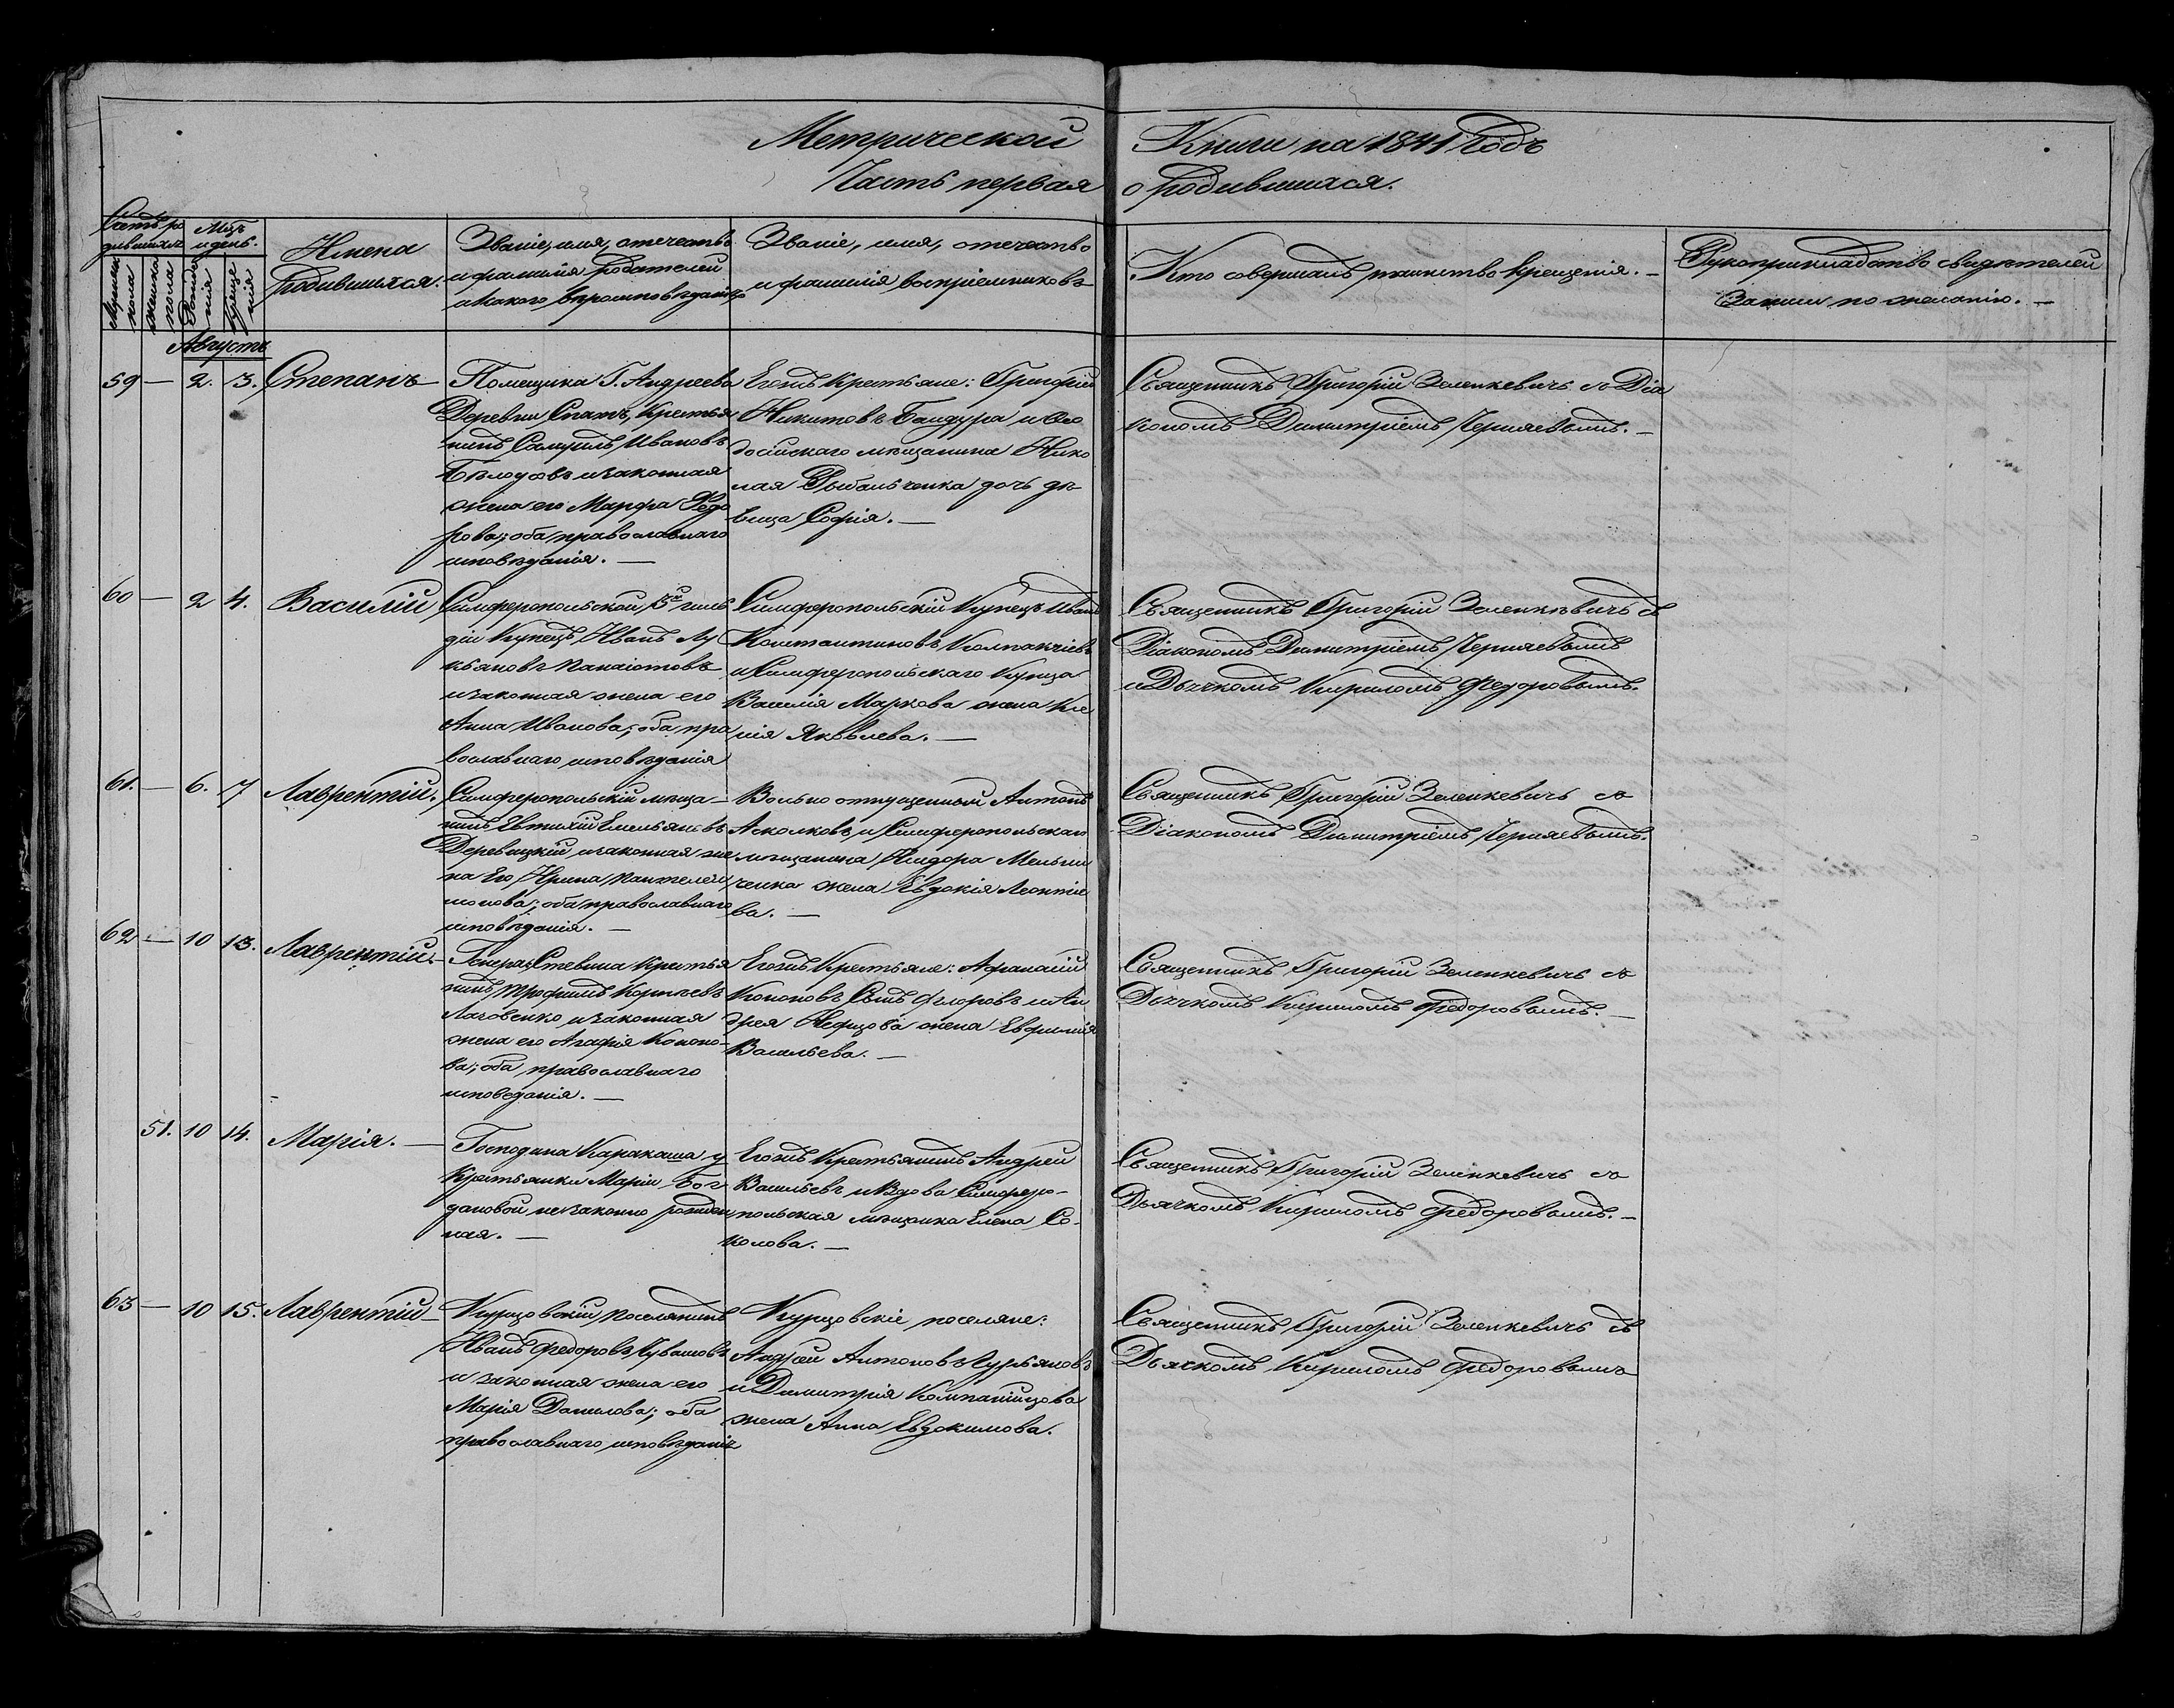 Метрической Книги на 1841 Годъ
Часть первая о родившихся.
Счетъ ро
дившихся
Мужеска
пола
женска
пола
Мѣсъ
и день.
рожде
нія
креще
нія
Имена
родившихся.
Званіе, имя, отечество
и фамилія родителей
и какого вѣроисповѣданія
Званіе, имя, отечество
и фамилія воспріемниковъ
Кто совершалъ таинство крещенія. —
Рукоприкладство свидѣтелей
записи по желанію. —
Августъ
59 — 2. 3. Степанъ
Помещика Г. Андреева
Деревни Спатъ, крестья
нинъ Самуилъ Ивановъ
Бѣлоусовъ и законная
жена его Марфа Федо
рова; оба православнаго
исповѣданія. —
Егожъ крестьяне: Григорій
Никитовъ Бандура и Ѳео
досійскаго мѣщанина Нико
лая Рыбальченка дочь дѣ
вица Софія. —
Священникъ Григорій Зеленкевичъ съ Діа
кономъ Димитріемъ Черняевымъ. —
60 — 2 4. Василій
Симферопольской 3й гиль
діи Купецъ Иванъ Лу
кьяновъ Панаіотовъ
и законная жена его
Анна Иванова; оба пра
вославнаго исповѣданія
Симферопольскій Купецъ Иванъ
Константиновъ Колпакчіевъ
и Симферопольскаго Купца
Василія Маркова жена Ксе
нія Яковлева. —
Священникъ Григорій Зеленкевичъ съ
Діакономъ Димитріемъ Черняевымъ
и Дьячкомъ Кириломъ Федоровымъ.
61. — 6. 7 Лаврентій.
Симферопольскій мѣща-
нинъ Евтихій Емельяновъ
Деревицкій и законная же
на Его Ирина Пантелеи
монова; оба православнаго
исповѣданія. —
Вольно отпущенный Антонъ
Асколковъ, и Симферопольскаго
мѣщанина Исидора Мельни
ченка жена Евдокія Леонтіе
ва. —
Священникъ Григорій Зеленкевичъ съ
Діакономъ Димитріемъ Черняевымъ.
62 — 10 13. Лаврентій. —
Стевина крестья
нинъ Трофимъ Корнѣевъ
Лаговенко и законная
жена его Агафія Кононо-
ва; оба православнаго
исповеданія. —
Егожъ Крестьяне: Афанасій
Кононовъ Сынъ Флоровъ и Ан
дрея Нефидова жена Евфимія
Васильева. —
Священникъ Григорій Зеленкевичъ съ
Дьячкомъ Кириломъ Федоровымъ. —
51. 10 14. Марія. —
Господина Каракаша у
Крестьянки Маріи Бог-
дановой незаконно рожден
ная. —
Егожъ Крестьянинъ Андрей
Васильевъ и Вдова Симферо-
польская мѣщанка Елена Со-
колова. —
Священникъ Григорій Зеленкевичъ съ
Дьячкомъ Кириломъ Федоровымъ. —
63 — 10 15. Лаврентій —
Курцовскій поселянинъ
Иванъ Федоровъ Кувашовъ
и законная жена его
Марія Данилова; оба
православнаго исповѣданія
Курцовскіе поселяне:
Андрей Антоновъ Курьяновъ
и Димитрія Компанійцова
жена Анна Евдокимова.
Священникъ Григорій Зеленкевичъ съ
Дьячкомъ Кириломъ Федоровымъ